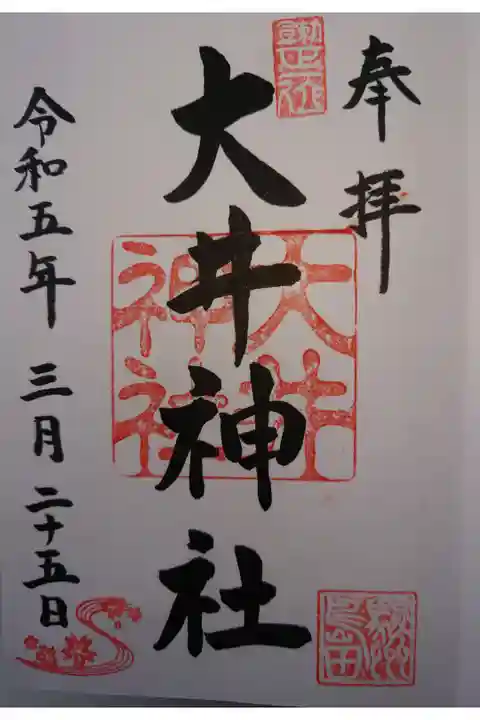 奉拝
大井神社
大井神社
令和五年 三月 二十五日